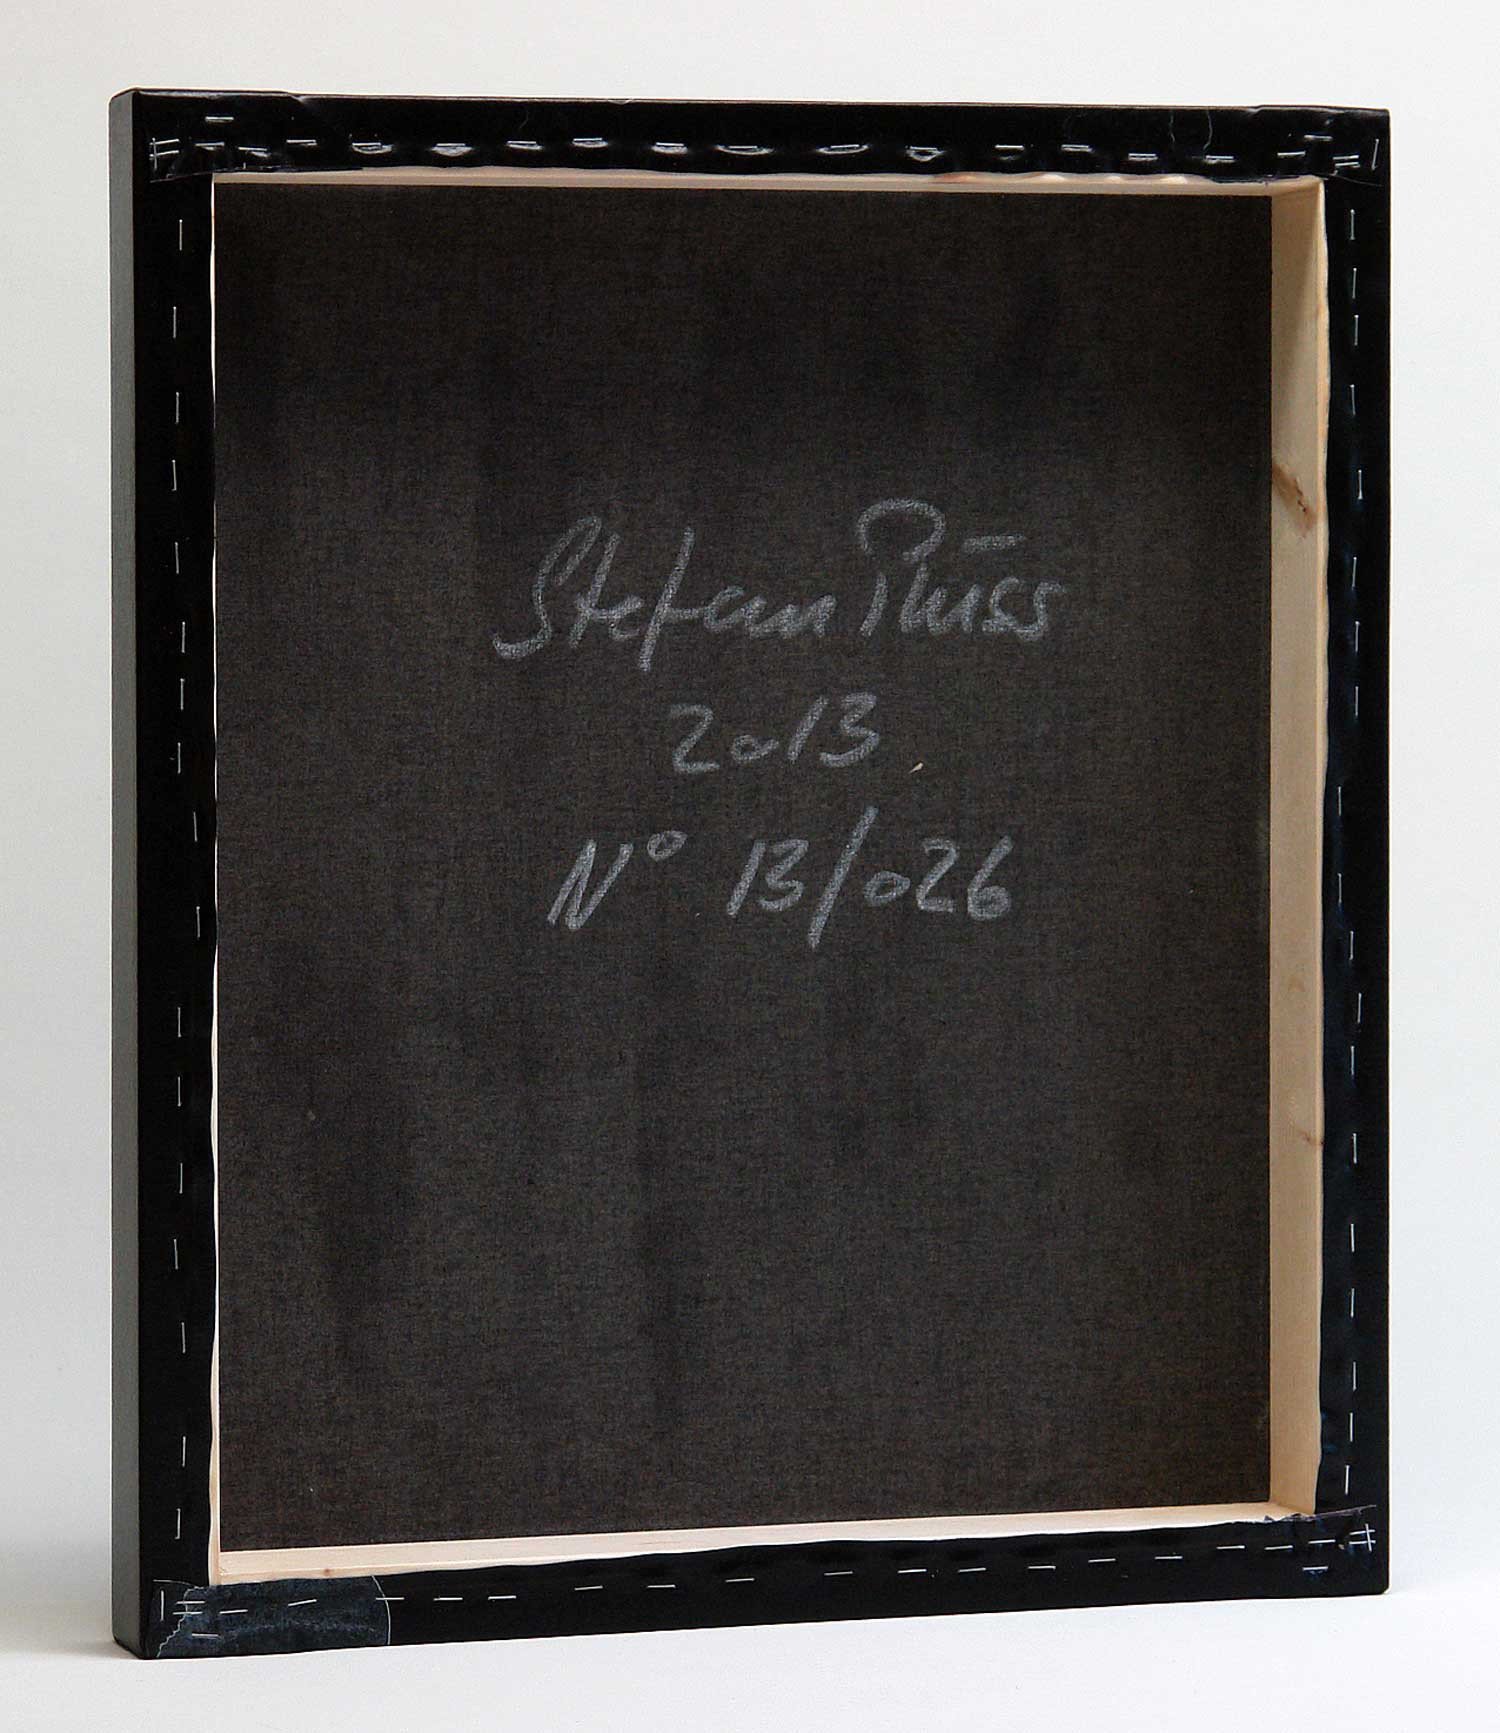 Stefan Plüss
2013
Nº 13/026